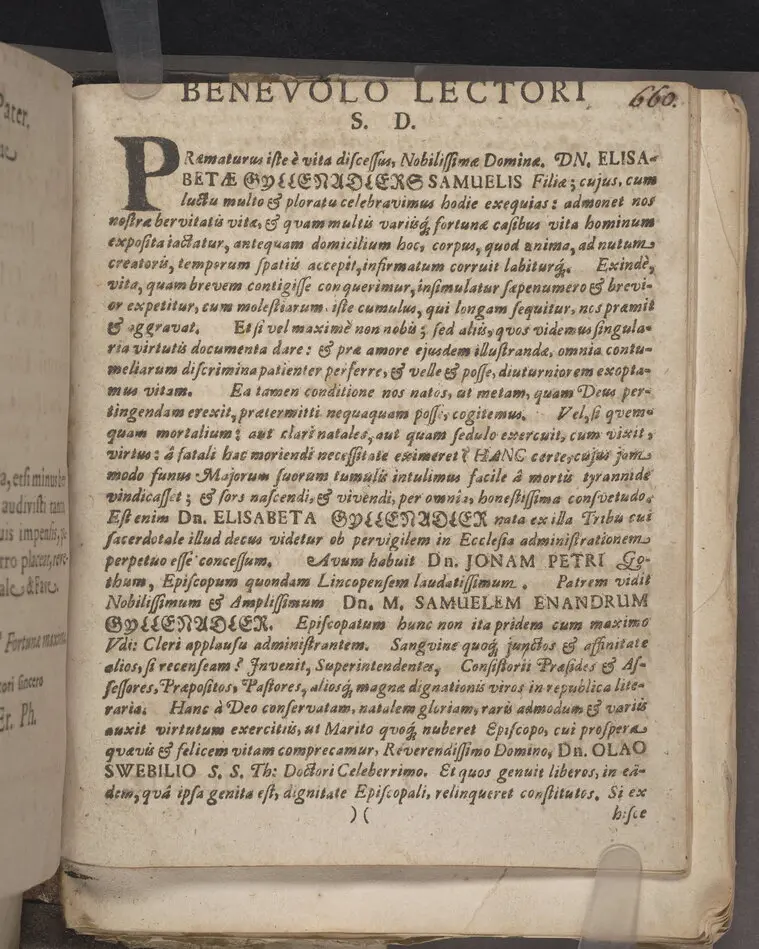 BENEVOLO LECTORI
660.
S. D.
PRæmaturus iste è vita discessus, Nobilissimæ Dominæ. DN. ELISA-
BETÆ GYLLENADLERS SAMUELIS Filiæ; cujus, cum
luctu multo & ploratu celebravimus hodie exequias: admonet nos
nostræ bervitatis vitæ, & quam multis variisq́; fortunæ casibus vita hominum
exposita iactatur, antequam domicilium hoc, corpus, quod anima, ad nutum
creatoris, temporum spatiis accepit, infirmatum corruit labiturq́;. Exinde,
vita, quam brevem contigisse conquerimur, insimulatur sæpenumero & brevi-
or expetitur, cum molestiarum iste cumulus, qui longam sequitur, nos præmit
& aggravat. Et si vel maximè non nobis; sed aliis, qvos videmus singula-
ria virtutis documenta dare: & præ amore ejusdem illustrandæ, omnia contu-
meliarum discrimina patienter perferre, & velle & posse, diuturniorem exopta-
mus vitam. Ea tamen conditione nos natos, ut metam, quam Deus per-
tingendam erexit, prætermitti nequaquam posse, cogitemus. Vel, si qvem-
quam mortalium: aut clari natales, aut quam sedulo exercuit, cum vixit,
virtus: â fatali hac moriendi necessitate eximeret? HANC certe, cujus jam
modo funus Majorum suorum tumulis intulimus facile â mortis tyrannide
vindicasset; & sors nascendi, & vivendi, per omnia, honestissima consvetudo.
Est enim Dn. ELISABETA GYLLENADLER nata ex illa Tribu cui
sacerdotale illud decus videtur ob pervigilem in Ecclesia administrationem
perpetuo esse concessum. Avum habuit Dn. JONAM PETRI Go-
thum, Episcopum quondam Lincopensem laudatissimum. Patrem vidit
Nobilissimum & Amplissimum Dn. M. SAMUELEM ENANDRUM
GYLLENADLER. Episcopatum hunc non ita pridem cum maximo
Vdi: Cleri applausu administrantem. Sangvine quoq́; junctos & affinitate
alios, si recenseam? Invenit, Superintendentes, Consistorii Præsides & As-
sessores, Præpositos, Pastores, aliosq́; magnæ dignationis viros in republica lite-
raria. Hanc à Deo conservatam, natalem gloriam, raris admodum & variis
auxit virtutum exercitiis, ut Marito quoq́; nuberet Episcopo, cui prospera
quævis & felicem vitam comprecamur, Reverendissimo Domino, Dn. OLAO
SWEBILIO S. S. Th: Doctori Celeberrimo. Et quos genuit liberos, in eâ-
dem, quâ ipsa genita est, dignitate Episcopali, relinqueret constitutos. Si ex
)( hisce
Pater.
a, etsi minus
audivisti tam
uis impensis,
rro placeat,
ale & Fave.
Fortunæ maxim
tori sincero
Er. Ph.